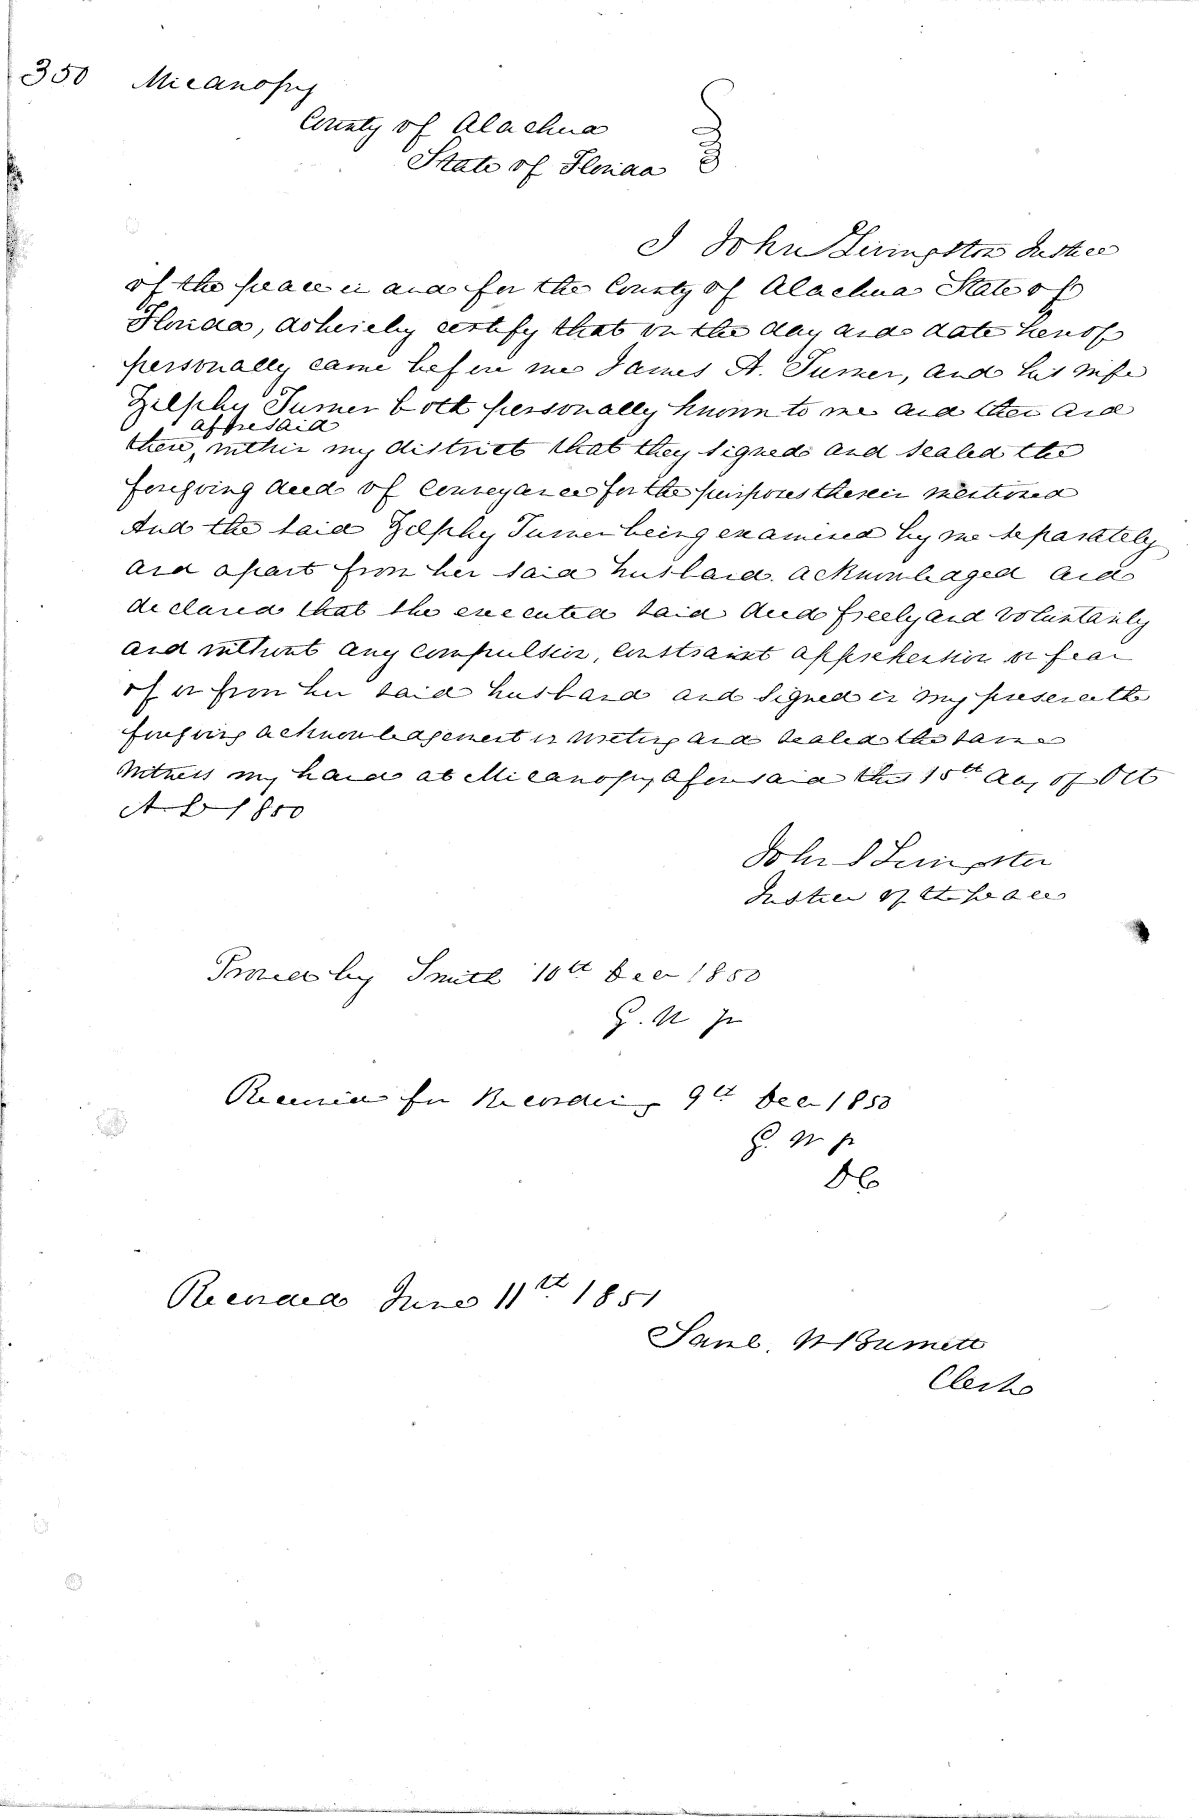 350 Micanopy
County of Alachua
State of Florida
I John S Livingston Justice
of the peace in and for the County of Alachua State of
Florida, do hereby certify that on the day and date hereof
personally came before me James A. Turner, and his wife
Zilphy Turner both personally known to me and then and
aforesaid
there, within my district that they signed and sealed the
foregoing deed of Conveyance for the purposes therein mentioned
And the said Zilphy Turner being examined by me separately
and apart from her said husband. acknowledged and
declared that she executed said deed freely and voluntarily
and without any compulsion, constraint apprehension or fear
of or from her said husband and signed in my presence the
foregoing acknowledgement in writing and sealed the same
Witness my hand at Micanopy aforesaid this 15th day of Oct
A D 1850
John S Livingston
Justice of the peace
Proved by Smith 10th Dec 1850
Received for Recording 9th Dec 1850
DC
Recorded June 11th 1851
Saml. W Burnett
Clerk